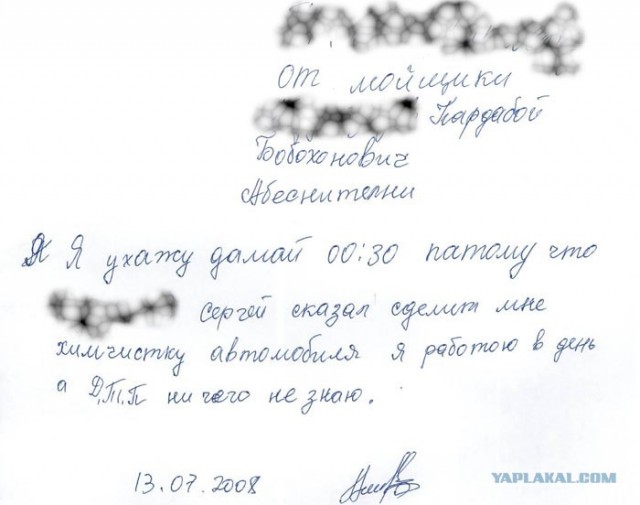 от мойщики
Кардабой
Бобохонович
Абеснителни
Я ухажу дамай 00:30 патому что
Сергей сказал сделит мне
химчистку автомобиля я работою в день
а Д.Т.П ни чего не знаю.
13.07.2008
YAPLAKAL.COM